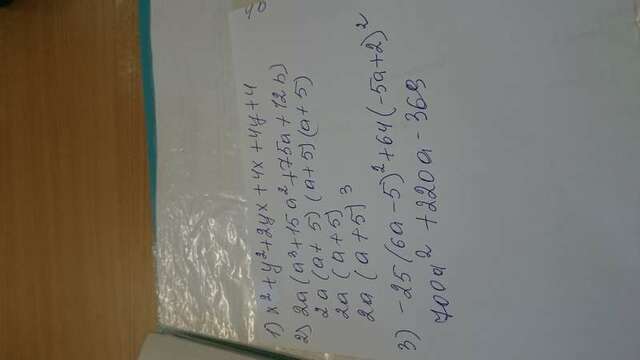 1) x² + y² + 2yx + 4x + 4y + 4
2) 2a (a³ + 15a² + 75a + 12b)
2a (a + 5) (a + 5) (a + 5)
2a (a + 5)
2a (a + 5)³
3) -25 (6a - 5)² + 64 (-5a + 2)²
700a² + 220a - 369